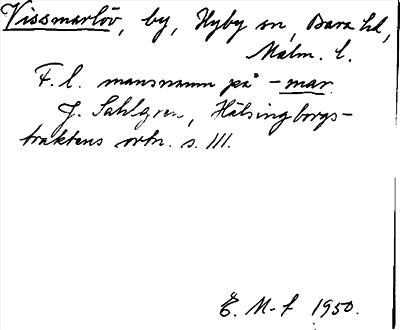 Vissmarlöv, by, Hyby sn, Bara hd,
Malm. l.
F. l. mansnamn på -mar.
J. Sahlgren, Hälsingborgs-
traktens ortn. s. 111.
E. M-f 1950.